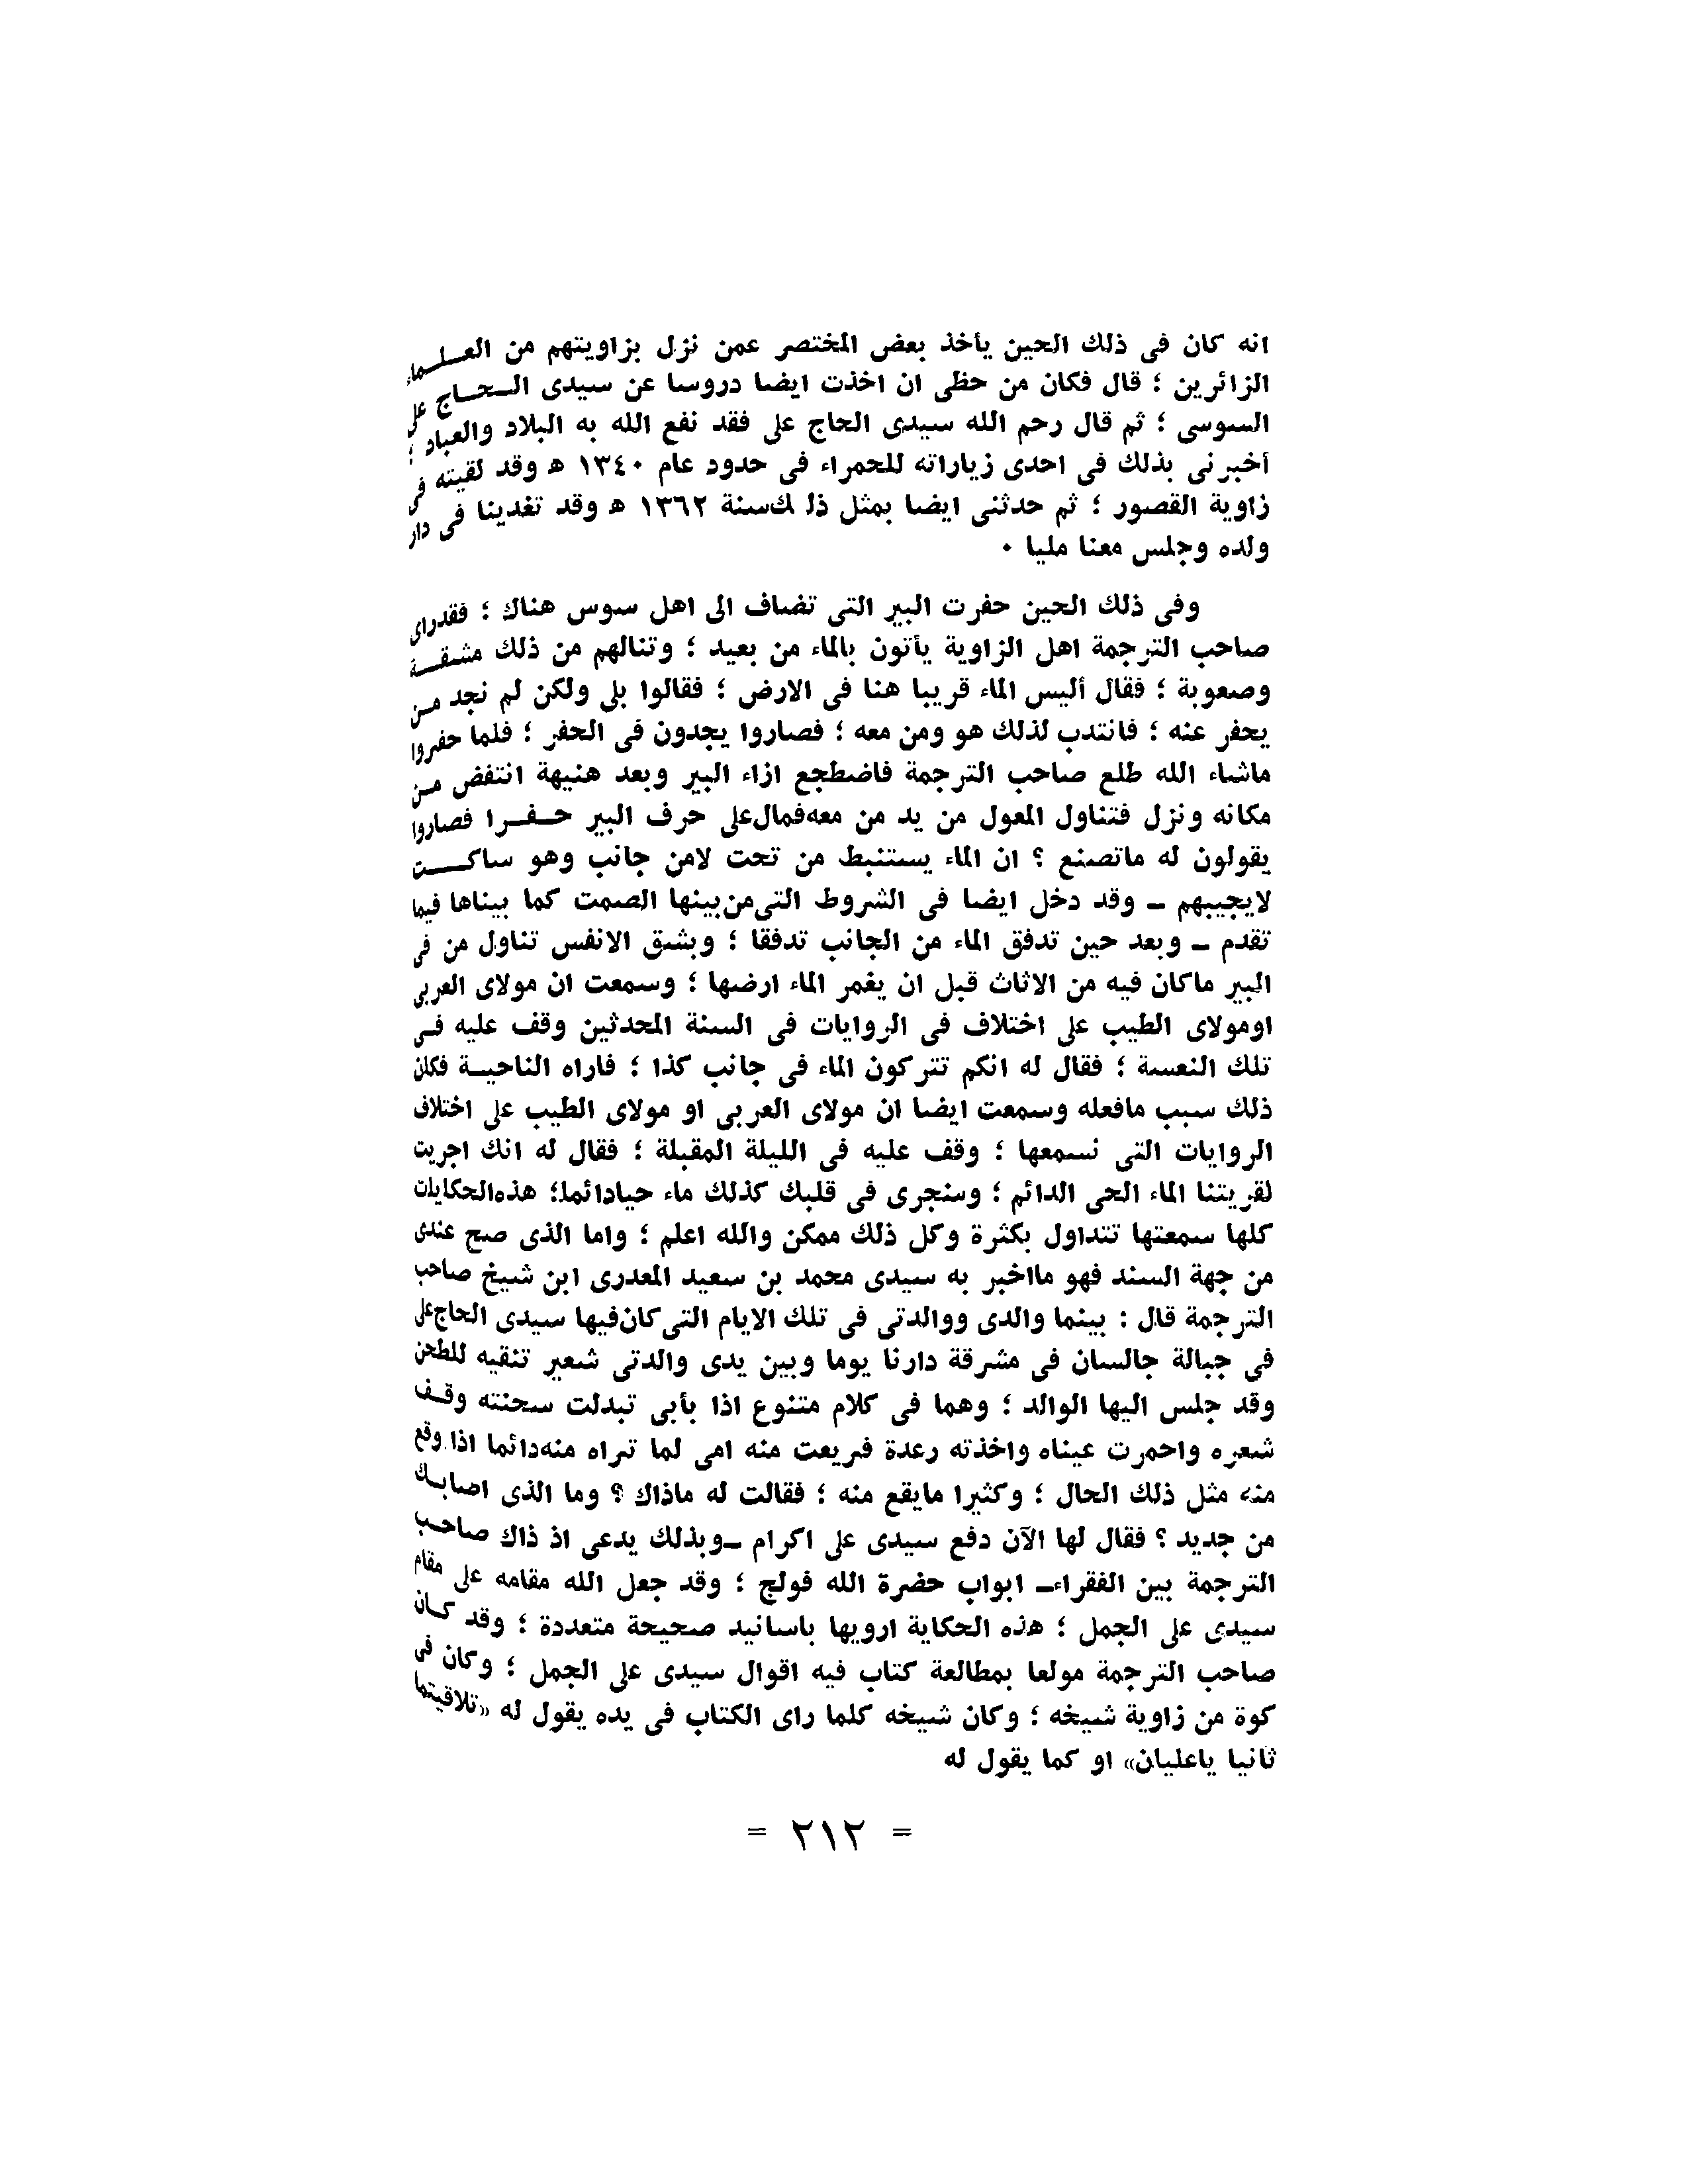 انه كان فى ذلك الحين يأخذ بعض المختصر عمن نزل بزاويتهم من العلماء
الزائرين ؛ قال فكان من حظى ان اخذت ايضا دروسا عن سيدى الحاج على
السوسى ؛ ثم قال رحم الله سيدى الحاج على فقد نفع الله به البلاد والعباد ؛
أخبرنى بذلك فى احدى زياراته للحمراء فى حدود عام ١٣٤٠ ه وقد لقيته فى
زاوية القصور ؛ ثم حدثنى ايضا بمثل ذلك سنة ١٣٦٢ ه وقد تغدينا فى دار
ولده وجلس معنا مليا ٠
وفى ذلك الحين حفرت البير التى تضاف الى اهل سوس هناك ؛ فقدراى
صاحب الترجمة اهل الزاوية يأتون بالماء من بعيد ؛ وتنالهم من ذلك مشقة
وصعوبة ؛ فقال أليس الماء قريبا هنا فى الارض ؛ فقالوا بلى ولكن لم نجد من
يحفر عنه ؛ فانتدب لذلك هو ومن معه ؛ فصاروا يجدون فى الحفر ؛ فلما حفروا
ماشاء الله طلع صاحب الترجمة فاضطجع ازاء البير وبعد هنيهة انتفض من
مكانه ونزل فتناول المعول من يد من معه فمال على حرف البير حفرا فصاروا
يقولون له ماتصنع ؟ ان الماء يستنبط من تحت لامن جانب وهو ساكت
لايجيبهم – وقد دخل ايضا فى الشروط التى من بينها الصمت كما بيناها فيما
تقدم – وبعد حين تدفق الماء من الجانب تدفقا ؛ وبشق الانفس تناول من فى
البير ماكان فيه من الاثاث قبل ان يغمر الماء ارضها ؛ وسمعت ان مولاى العربى
اومولاى الطيب على اختلاف فى الروايات فى السنة المحدثين وقف عليه فى
تلك النعسة ؛ فقال له انكم تتركون الماء فى جانب كذا ؛ فاراه الناحية فكان
ذلك سبب مافعله وسمعت ايضا ان مولاى العربى او مولاى الطيب على اختلاف
الروايات التى نسمعها ؛ وقف عليه فى الليلة المقبلة ؛ فقال له انك اجريت
لقريتنا الماء الحى الدائم ؛ وسنجرى فى قلبك كذلك ماء حيادائما؛ هذه الحكايات
كلها سمعتها تتداول بكثرة وكل ذلك ممكن والله اعلم ؛ واما الذى صح عندى
من جهة السند فهو مااخبر به سيدى محمد بن سعيد المعدرى ابن شيخ صاحب
الترجمة قال : بينما والدى ووالدتى فى تلك الايام التى كان فيها سيدى الحاج على
فى جبالة جالسان فى مشرقة دارنا يوما وبين يدى والدتى شعير تنقيه للطحن
وقد جلس اليها الوالد ؛ وهما فى كلام متنوع اذا بأبى تبدلت سحنته وقف
شعره واحمرت عيناه واخذته رعدة فريعت منه امى لما تراه منه دائما اذا وقع
منه مثل ذلك الحال ؛ وكثيرا مايقع منه ؛ فقالت له ماذاك ؟ وما الذى اصابك
من جديد ؟ فقال لها الآن دفع سيدى على اكرام –وبذلك يدعى اذ ذاك صاحب
الترجمة بين الفقراء– ابواب حضرة الله فولج ؛ وقد جعل الله مقامه على مقام
سيدى على الجمل ؛ هذه الحكاية ارويها باسانيد صحيحة متعددة ؛ وقد كان
صاحب الترجمة مولعا بمطالعة كتاب فيه اقوال سيدى على الجمل ؛ وكان فى
كوة من زاوية شيخه ؛ وكان شيخه كلما راى الكتاب فى يده يقول له «تلاقيتما
ثانيا ياعليان» او كما يقول له
= ٢١٢ =